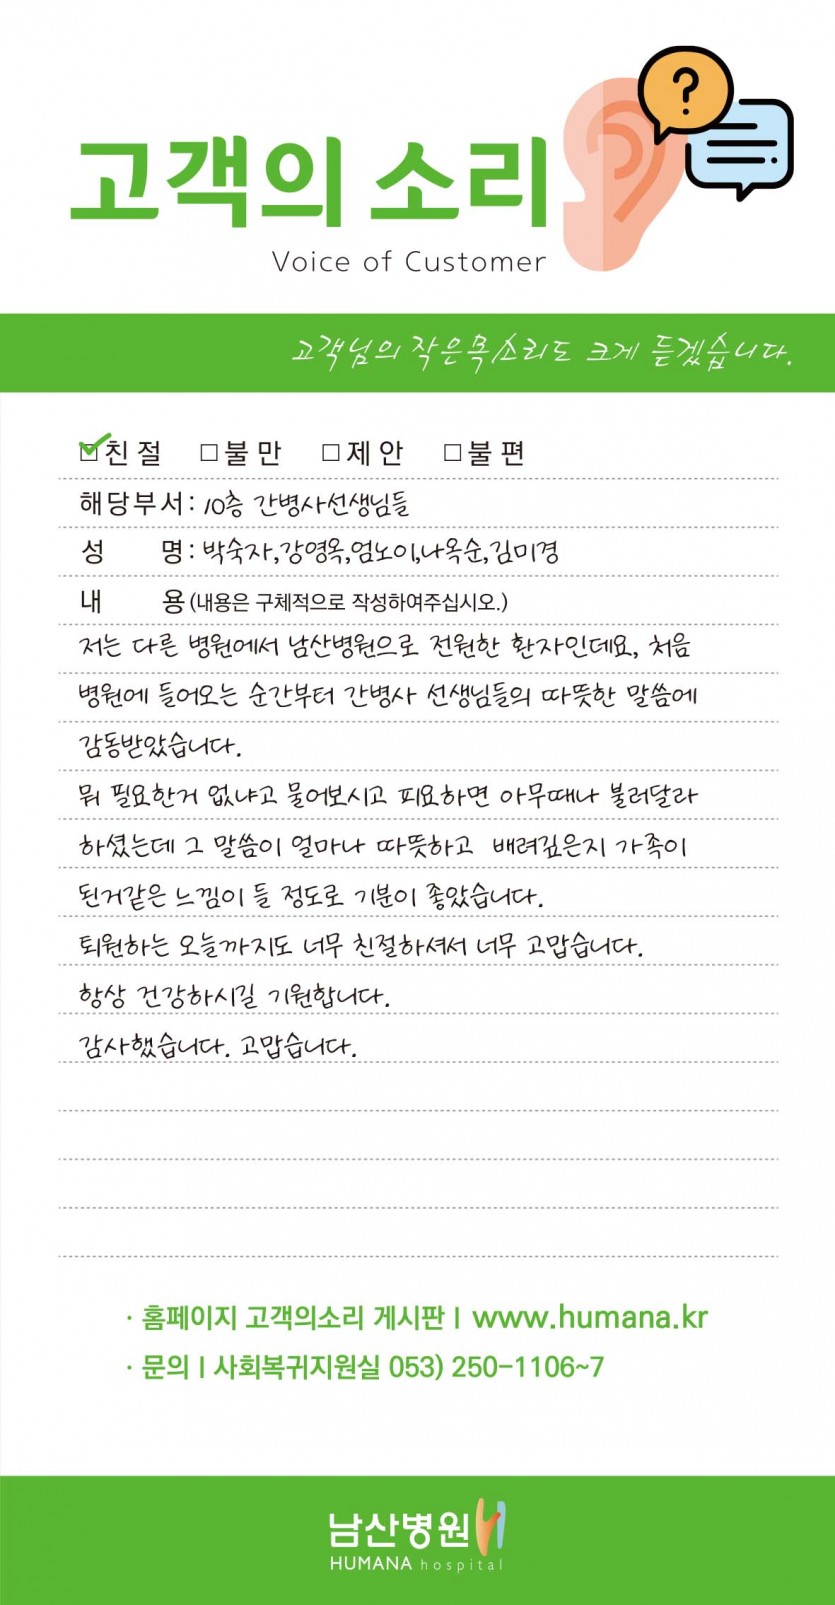 ?
고객의 소리
Voice of Customer
고객님의 작은목소리도 크게 듣겠습니다.
☑친절 □불만 □제안 □불편
해당부서: 10층 간병사선생님들
성 명: 박숙자,강영옥,엄노이,나옥순,김미경
내 용(내용은 구체적으로 작성하여주십시오.)
저는 다른 병원에서 남산병원으로 전원한 환자인데요, 처음
병원에 들어오는 순간부터 간병사 선생님들의 따뜻한 말씀에
감동받았습니다.
뭐 필요한거 없냐고 물어보시고 피요하면 아무때나 불러달라
하셨는데 그 말씀이 얼마나 따뜻하고 배려깊은지 가족이
된거같은 느낌이 들 정도로 기분이 좋았습니다.
퇴원하는 오늘까지도 너무 친절하셔서 너무 고맙습니다.
항상 건강하시길 기원합니다.
감사했습니다. 고맙습니다.
· 홈페이지 고객의소리 게시판 | www.humana.kr
· 문의 | 사회복귀지원실 053) 250-1106~7
남산병원
HUMANA hospital